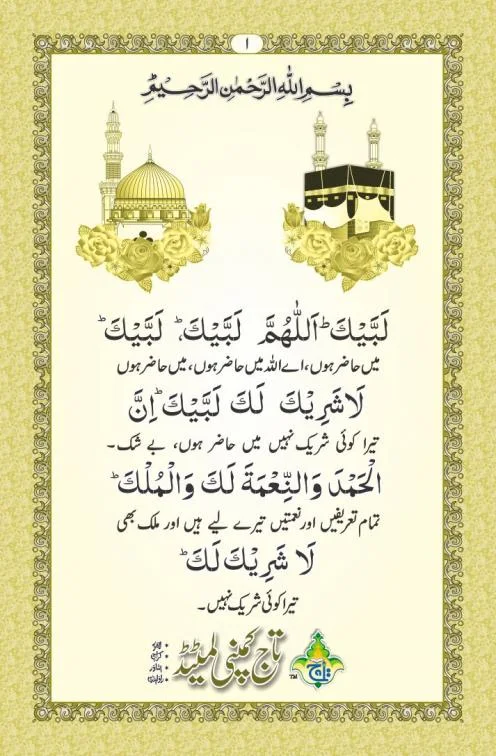 ۱
بِسْمِ اللّٰهِ الرَّحْمٰنِ الرَّحِيْمِ ط
لَبَّيْكَ ط اَللّٰهُمَّ لَبَّيْكَ ط لَبَّيْكَ ط
میں حاضر ہوں، اے اللہ میں حاضر ہوں، میں حاضر ہوں
لَا شَرِيْكَ لَكَ لَبَّيْكَ ط اِنَّ
تیرا کوئی شریک نہیں میں حاضر ہوں، بے شک۔
الْحَمْدَ وَالنِّعْمَةَ لَكَ وَالْمُلْكَ ط
تمام تعریفیں اور نعمتیں تیرے لیے ہیں اور ملک بھی
لَا شَرِيْكَ لَكَ ط
تیرا کوئی شریک نہیں۔
تاج
TM
تاج کمپنی لمیٹیڈ